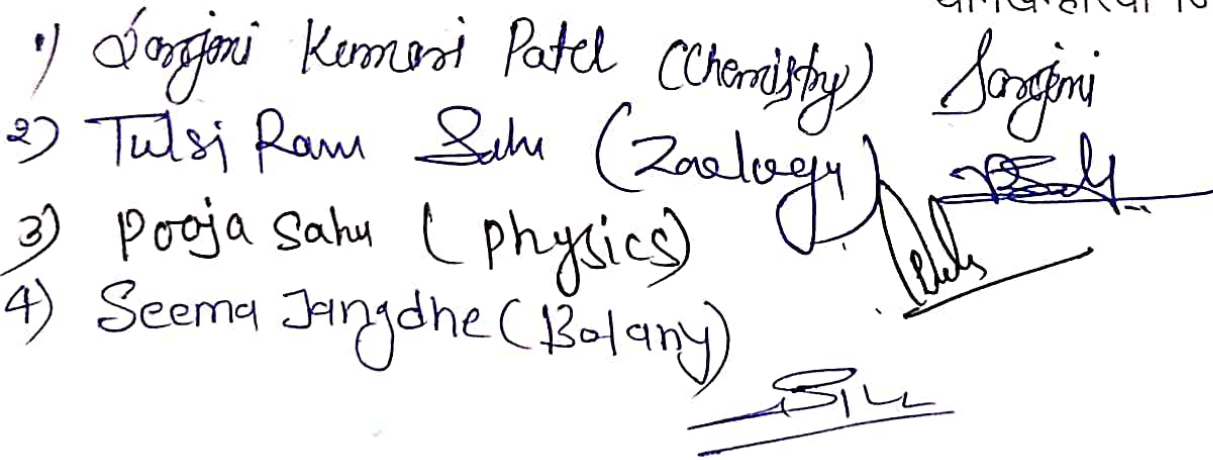 1) Sarojini Kumari Patel (Chemistry) Sarojini
2) Tulsi Ram Sahu (Zoology)
3) Pooja Sahu (Physics)
4) Seema Jangdhe (Botany)